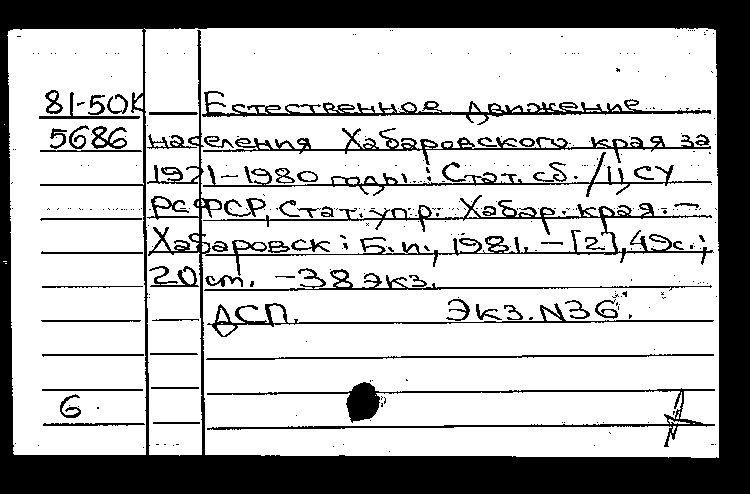 81-50К Естественное движение
5686 населения Хабаровского края за
1971-1980 годы : Стат. сб. / ЦСУ
РСФСР, Стат. упр. Хабар. края. —
Хабаровск : Б.и., 1981. — [2], 49 с.;
20 см. — 38 экз.
ДСП. Экз. N36.
6